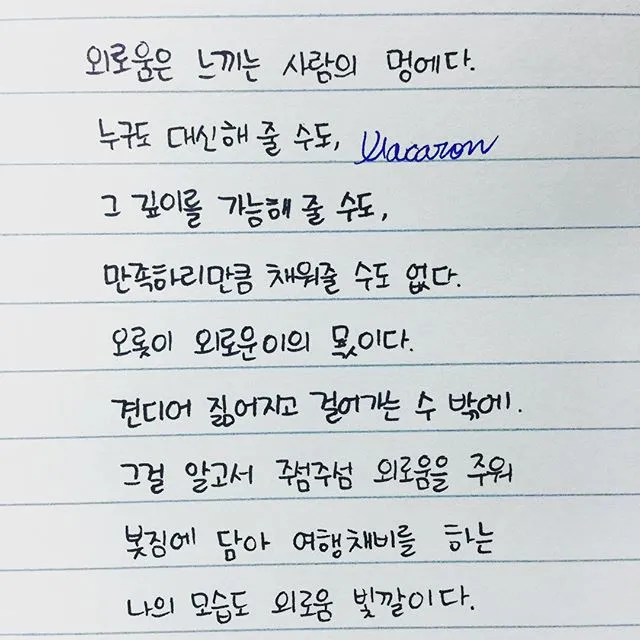 외로움은 느끼는 사람의 멍에다.
누구도 대신해 줄 수도, Macaron
그 깊이를 가늠해 줄 수도,
만족하리만큼 채워줄 수도 없다.
오롯이 외로운이의 몫이다.
견디어 짊어지고 걸어가는 수 밖에.
그걸 알고서 주섬주섬 외로움을 주워
봇짐에 담아 여행채비를 하는
나의 모습도 외로움 빛깔이다.